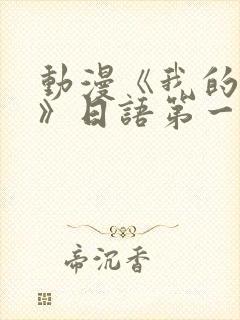 動漫《我的
》日語第一
帝沉香